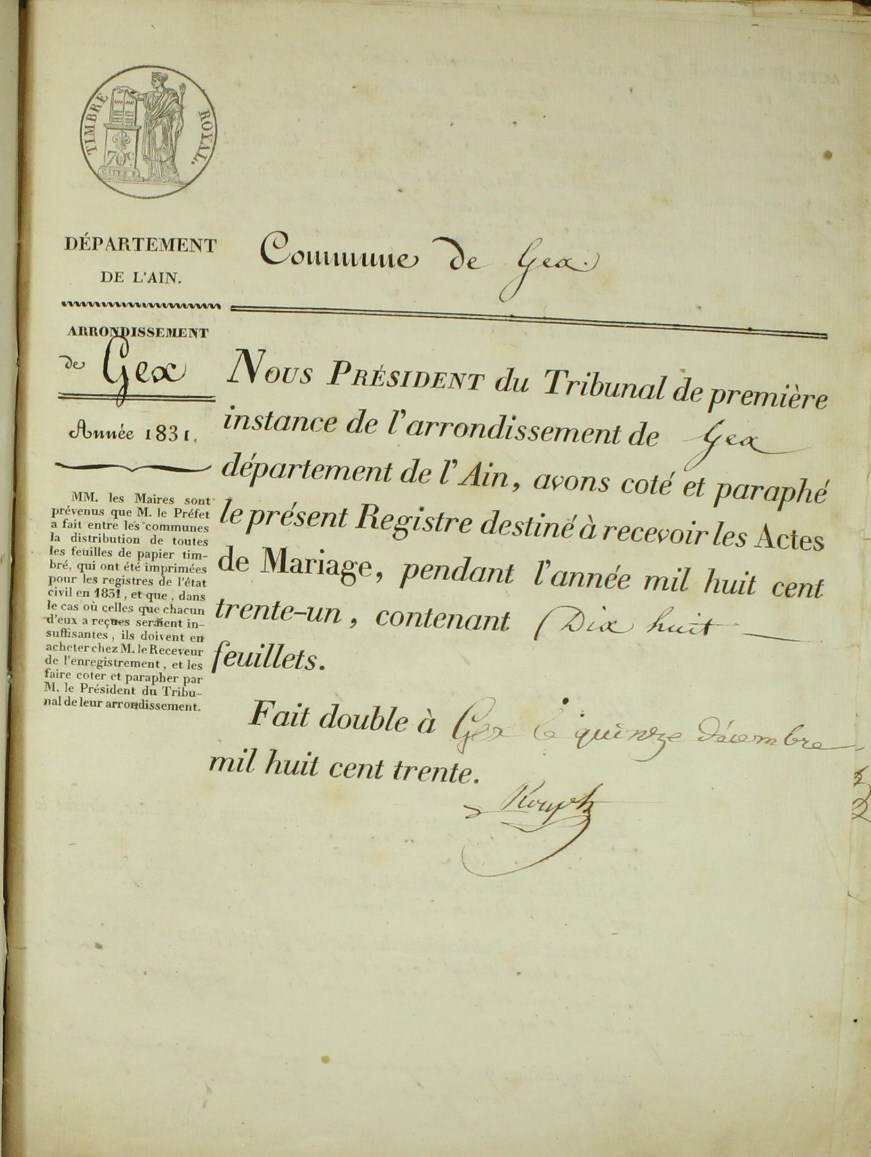 TIMBRE ROYAL.
70c
DÉPARTEMENT
DE L'AIN.
Commune de Gex.
ARRONDISSEMENT
de Gex
Année 1831.
MM. les Maires sont
prévenus que M. le Préfet
a fait entre les communes
la distribution de toutes
les feuilles de papier tim-
bré, qui ont été imprimées
pour les registres de l'état
civil en 1831, et que, dans
le cas où celles que chacun
d'eux a reçues seraient in-
suffisantes, ils doivent en
acheter chez M. le Receveur
de l'enregistrement, et les
faire coter et parapher par
M. le Président du Tribu-
nal de leur arrondissement.
NOUS PRÉSIDENT du Tribunal de première
instance de l'arrondissement de Gex
département de l'Ain, avons coté et paraphé
le présent Registre destiné à recevoir les Actes
de Mariage, pendant l'année mil huit cent
trente-un, contenant Dix huit
feuillets.
Fait double à Gex le quinze décembre
mil huit cent trente.